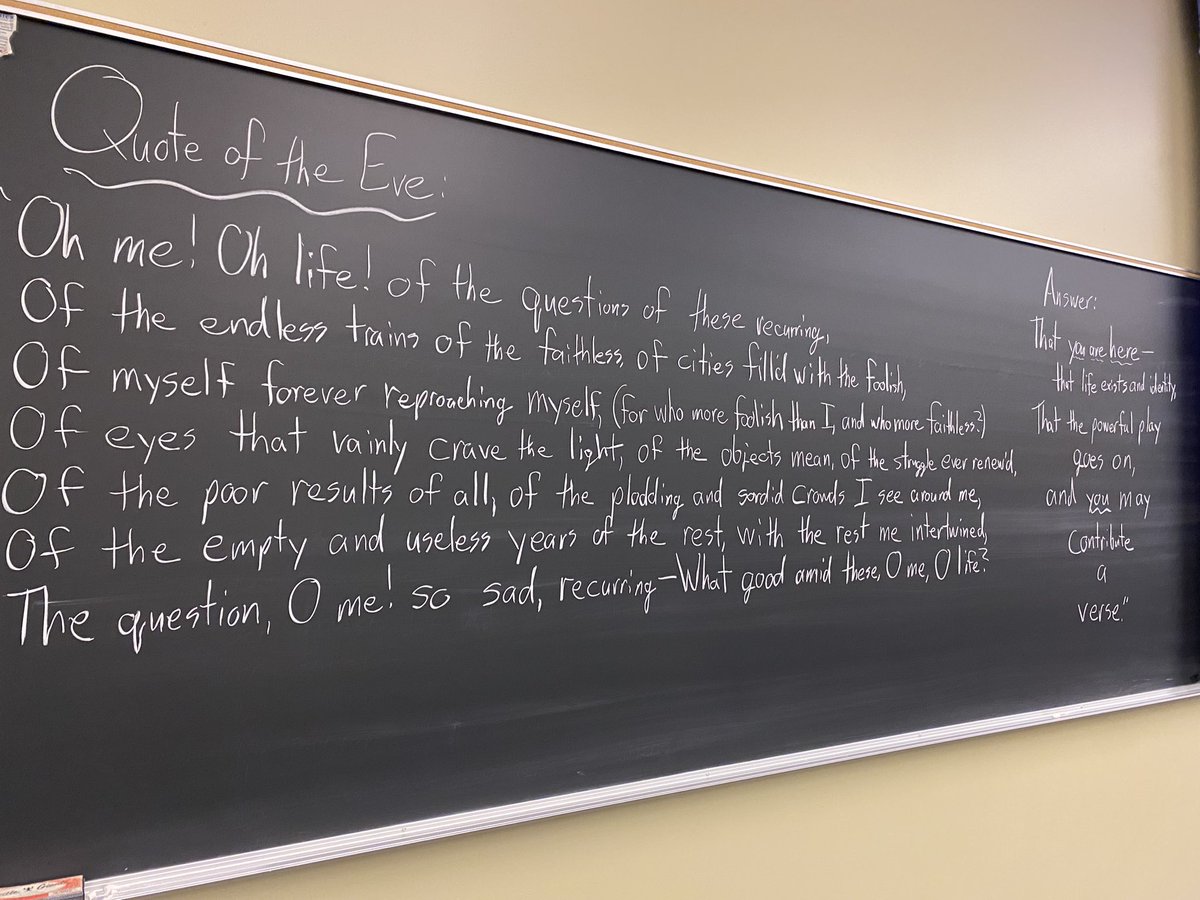 Quote of the Eve:
"Oh me! Oh life! of the questions of these recurring,
Of the endless trains of the faithless, of cities fill'd with the foolish,
Of myself forever reproaching myself, (for who more foolish than I, and who more faithless?)
Of eyes that vainly crave the light, of the objects mean, of the struggle ever renew'd,
Of the poor results of all, of the plodding and sordid crowds I see around me,
Of the empty and useless years of the rest, with the rest me intertwined,
The question, O me! so sad, recurring—What good amid these, O me, O life?
Answer:
That you are here—
that life exists and identity,
That the powerful play
goes on,
and you may
Contribute
a
verse."